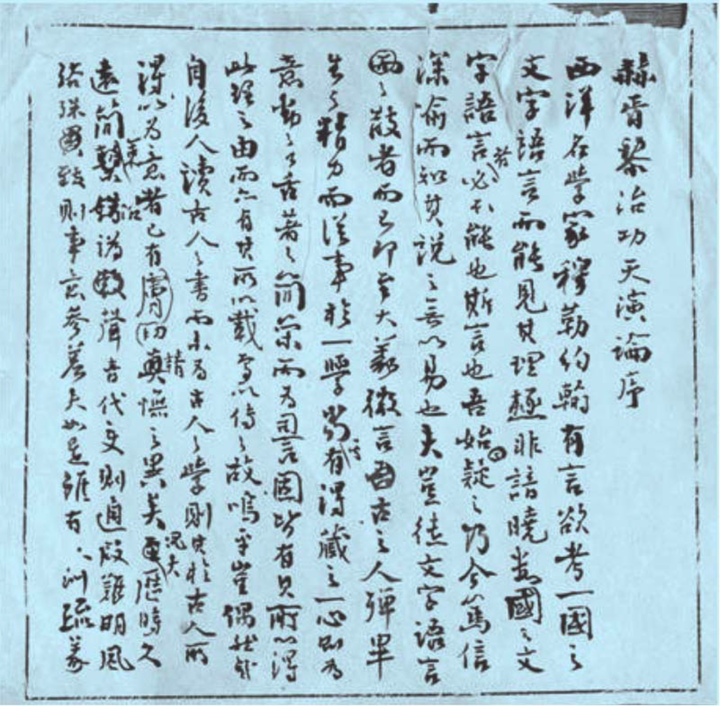 赫胥黎治功天演論序
西洋名學家穆勒約翰有言欲考一國之
文字語言而能見其理極非諳曉數國之文
字語言者必不能也斯言也吾始疑之乃今篤信
深喻而知其說之無以易也夫豈徒文字語言
之散者而已即至大義微言古之人殫畢
生之精力而從事於一學當其有得藏之一心則為
意動之口舌著之簡策而為詞固皆有其所以得
此理之由而亦有其所以載焉以傳之故嗚乎豈偶然哉
自後人讀古人之書而未為古人之學則其於古人所
得以為意者已有膚憮之異矣況夫歷時久
遠簡牘沿譌聲音代变則通叚難明風
俗殊致則事意參差夫如是雖有訓疏義